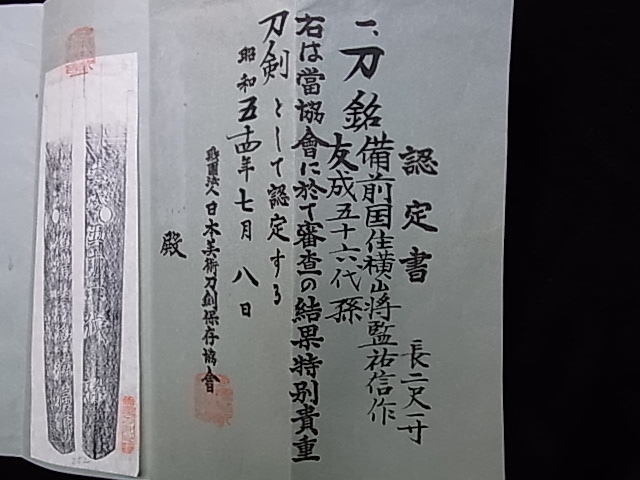 認定書
一、刀 銘 備前国住横山将監祐信作
友成五十六代孫
長二尺一寸
右は當協會に於て審査の結果特別貴重
刀劍として認定する
昭和五十四年七月八日
財團法人日本美術刀劍保存協會
殿